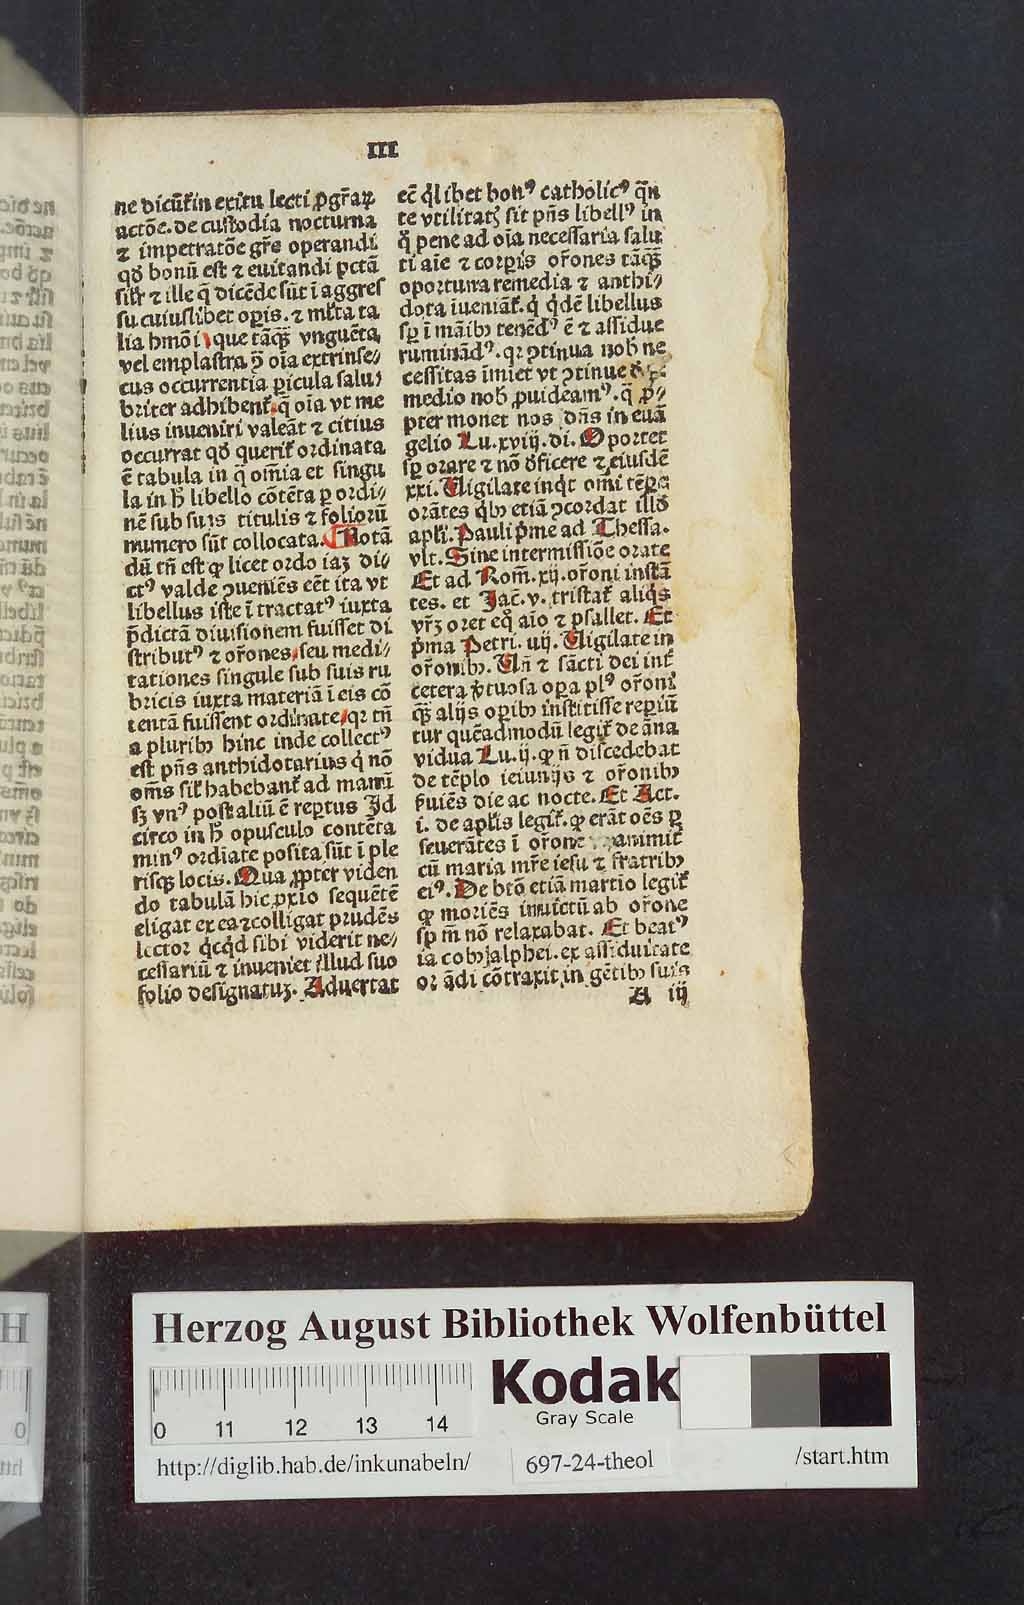 III
ne dicūt̄ in exitu lecti ꝑgr̄aꝝ
actōe. de custodia nocturna
⁊ impetratōe gr̄e operandi
qd̄ bonū est ⁊ euitandi pctā
sil̄r ⁊ ille q̄ dicēde sūt ī aggres
su cuiuslibet oꝑis. ⁊ ml̄ta ta
lia hmōi que tāqꝫ vnguēta
vel emplastra ꝓ oīa extrinse⸗
cus occurrentia ꝑicula salu⸗
briter adhibent̄. q̄ oīa vt me
lius inueniri valeāt ⁊ citius
occurrat qd̄ querit̄ ordinata
ē tabula in q̄ oīnia et singu
la in h̄ libello cōtēta ꝑ ordi⸗
nē sub suis titulis ⁊ folioꝛū
numero sūt collocata. Notā
dū tn̄ est ꝙ licet ordo iaꝫ di⸗
ctꝰ valde ꝯueniēs eēt ita vt
libellus iste ī tractatꝰ iuxta
p̄dictā diuisionem fuisset di
stributꝰ ⁊ or̄ones seu medi⸗
tationes singule sub suis ru
bricis iuxta materiā ī eis cō
tentā fuissent ordinate qꝛ tn̄
a pluribꝫ hinc inde collectꝰ
est pn̄s anthidotarius q̇ nō
om̄s sil̄ habebant̄ ad manū
sꝫ vnꝰ post aliū ē reꝑtus Id
circo in h̄ opusculo contēta
minꝰ ordīate posita sūt ī ple
risqꝫ locis. Qua ꝓpter viden
do tabulā hic ꝓxio sequētē
eligat ex ea ⁊ colligat prudēs
lector q̇cq̇d sibi viderit ne⸗
cessariū ⁊ inueniet illud suo
folio designatuꝫ. Aduertat
ec̄ q̇libet bonꝰ catholicꝰ q̄n
te vtilitatꝭ sit pn̄s libellꝰ in
q̇ pene ad oīa necessaria salu
ti aīe ⁊ corꝑis or̄ones tāqꝫ
oportuna remedia ⁊ anthi⸗
dota iueniāt̄. q̇ q̇dē libellus
sꝑ ī māibꝫ tenēdꝰ ē ⁊ assidue
ruminādꝰ. qꝛ ꝯtinua nob̄ ne
cessitas īminet vt ꝯtinue de
medio nob̄ ꝓuideamꝰ. q̄ ꝓ⸗
pter monet nos dn̄s in euā
gelio Lu. xviij. di. Oportet
sꝑ orare ⁊ nō d̄ficere ⁊ eiusdē
xxi. Uigilate inq̇t omi tēpe
orātes q̇bꝫ etiā ꝯcordat illd̄
apl̄i. Pauli p̄me ad Thessa.
vlt. Sine intermissiōe orate
Et ad Rom̄. xij. or̄oni instā
tes. et Jac̄. v. tristat̄ aliq̇s
vr̄ꝫ oret eq̇ aīo ⁊ psallet. Et
p̄ma Petri. iiij. Uigilate in
or̄onibꝫ. Un̄ ⁊ sācti dei int̄
cetera v̇tuosa oꝑa plꝰ or̄oni
qꝫ alijs oꝑibꝫ institisse reꝑiū
tur quēadmodū legit̄ de āna
vidua Lu. ij. ꝙ n̄ discedebat
de tēplo ieiunijs ⁊ or̄onibꝫ
s̄uiēs die ac nocte. Et Act.
i. de apl̄is legit̄. ꝙ erāt oēs ꝑ
seuerātes ī or̄one vnanimit̄
cū maria mr̄e iesu ⁊ fratribꝫ
eiꝰ. De btō etiā martio legit̄
ꝙ moriēs inuictū ab or̄one
sp̄m nō relaxabat. Et beatꝰ
iacobꝰ alphei. ex assiduitate
or ādi cōtraxit in gētibꝫ suis
A iij
Herzog August Bibliothek Wolfenbüttel
Kodak
Gray Scale
0 11 12 13 14
http://diglib.hab.de/inkunabeln/ 697-24-theol /start.htm